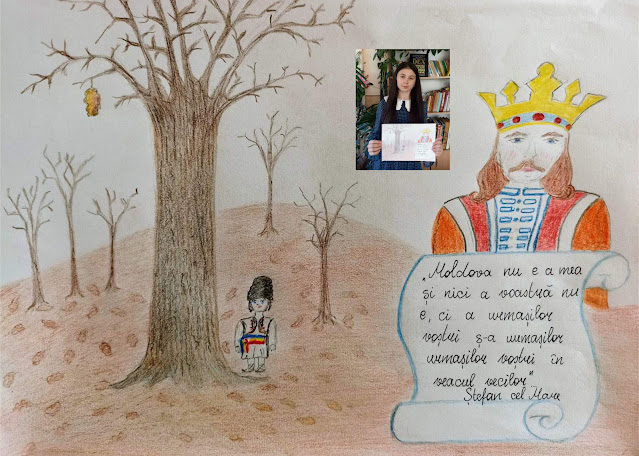 „Moldova nu e a mea
și nici a voastră nu
e, ci a urmașilor
voștri ș-a urmașilor
urmașilor voștri în
veacul vecilor”
Ștefan cel Mare